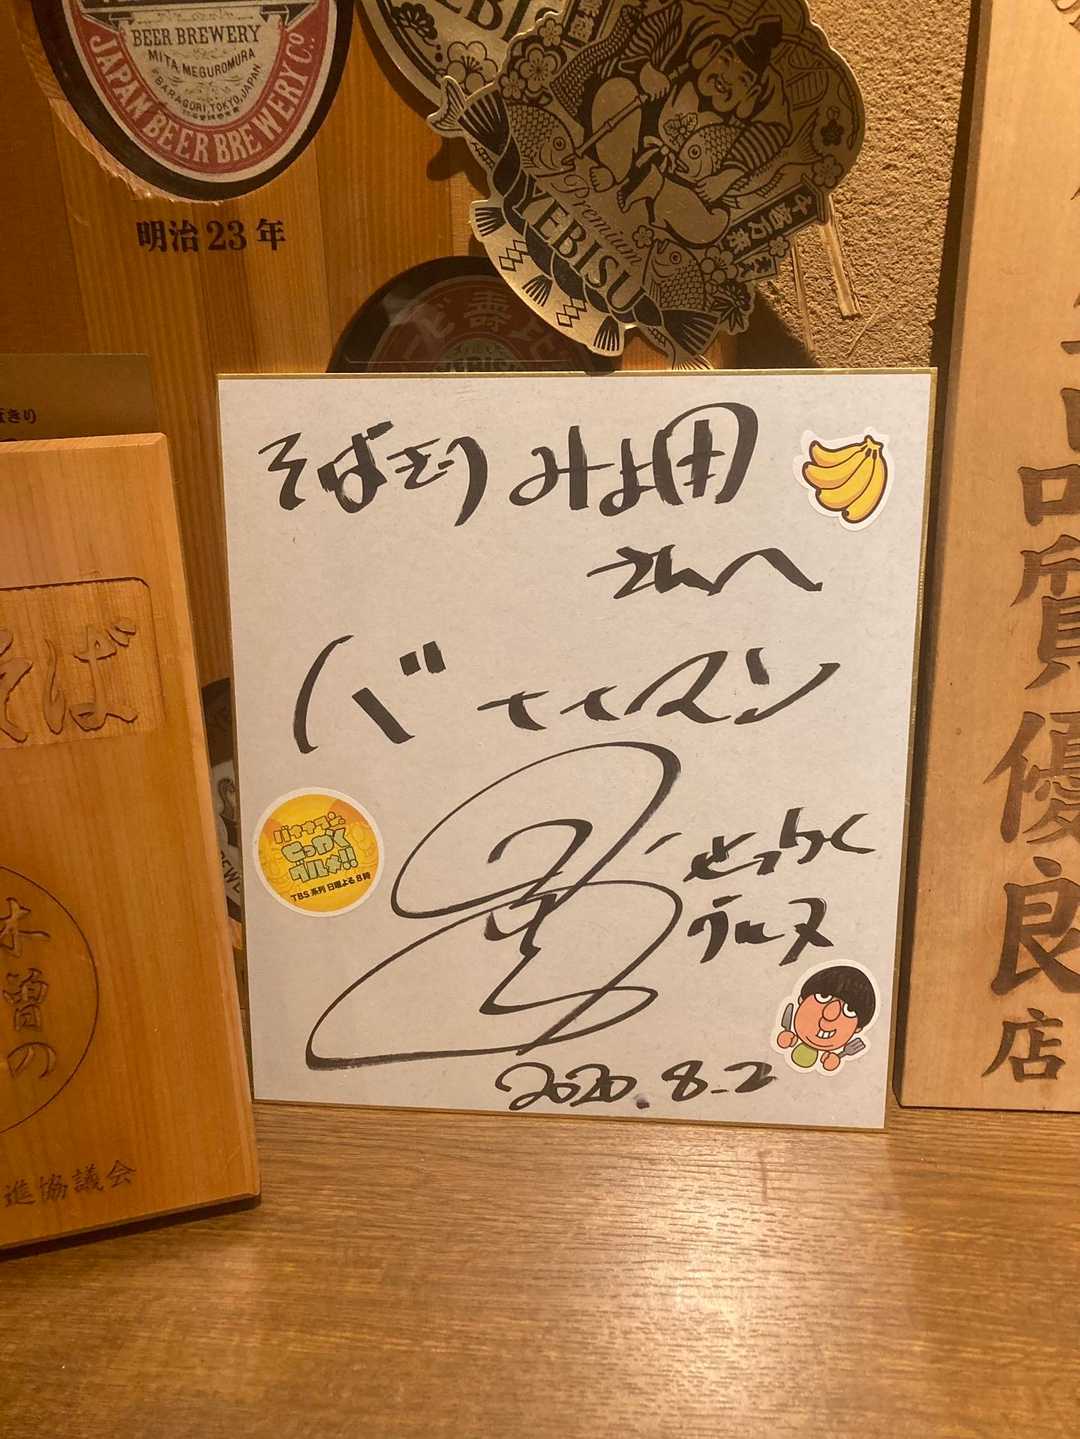 BEER BREWERY
MITA, MEGUROMURA
EBARAGORI, TOKYO, JAPAN
JAPAN BEER BREWERY Co
明治23年
YEBISU
Premium
YEBISU
そばきり みよ田
さんへ
バナナマン
せっかく
グルメ
2020.8.2
バナナマンの
せっかく
グルメ!!
TBS系列 日曜よる8時
そば
木曽の
進協議会
品質優良店